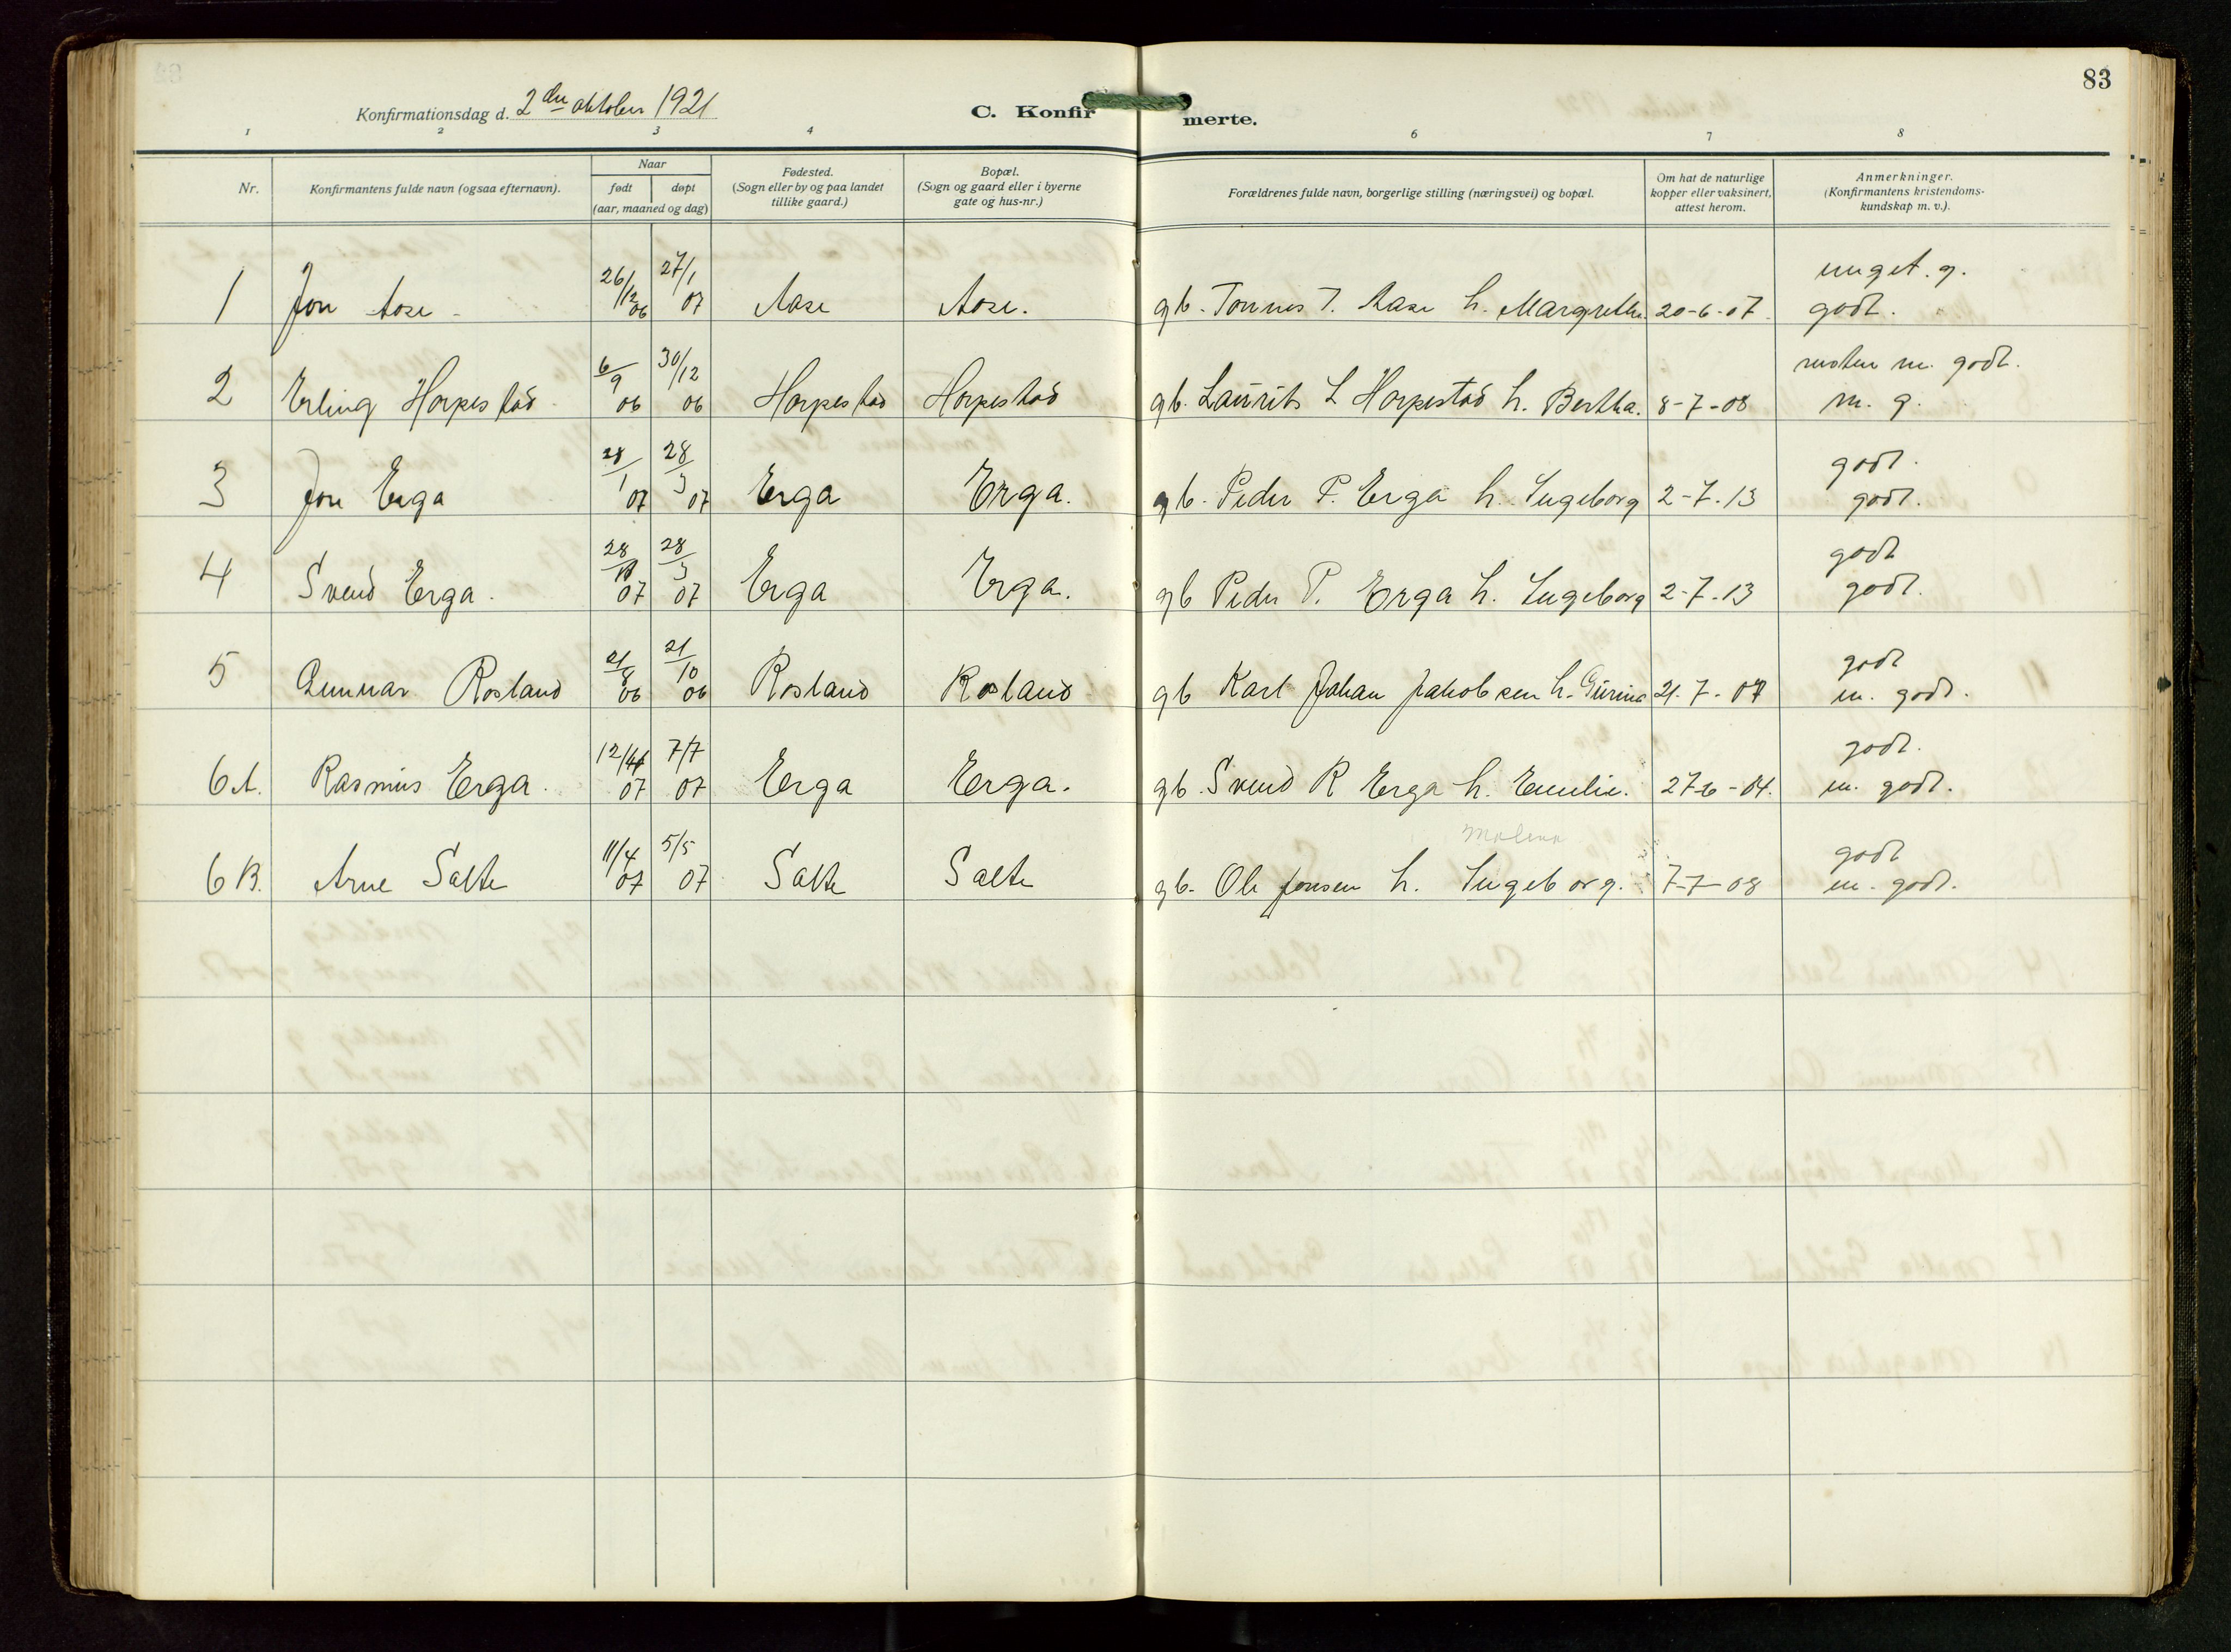 83
Konfirmationsdag d. 2den oktober 1921
C. Konfirmerte.
1 2 3 4 6 7 8
Nr.
Konfirmantens fulde navn (ogsaa efternavn).
Naar
født døpt
(aar, maaned og dag)
Fødested.
(Sogn eller by og paa landet
tillike gaard.)
Bopæl.
(Sogn og gaard eller i byerne
gate og hus-nr.)
Forældrenes fulde navn, borgerlige stilling (næringsvei) og bopæl.
Om hat de naturlige
kopper eller vaksinert,
attest herom.
Anmerkninger.
(Konfirmantens kristendoms-
kundskap m. v.).
26/12 27/1 meget. g.
1 Jon Aase 06 07 Aase Aase. gb. Tønnes T. Aase h. Margrethe. 20-6-07. godt.
6/9 30/12 næsten m. godt.
2 Erling Horpestad 06 06 Horpestad Horpestad gb. Laurits L Horpestad h. Bertha. 8-7-08 m. g.
28/1 28/3 godt.
3 Jon Erga 07 07 Erga Erga. gb. Peder P. Erga h. Ingeborg 2-7.13 godt.
28 28/3 godt
4 Svend Erga. 07 07 Erga Erga. gb Peder P. Erga h. Ingeborg 2-7.13 godt.
21/8 21/10 godt
5 Gunnar Rosland 06 06 Rosland Rosland gb Karl Johan Jakobsen h. Gurina 21.7-07 m. godt.
12/4 7/7 godt.
6A. Rasmus Erga. 07 07 Erga Erga. gb. Svend R Erga h. Emilie. 27-6-04. m. godt.
Malena
11/4 5/5 godt
6B. Arne Salte 07 07 Salte Salte gb. Ole Jonsen h. Ingeborg. 7-7-08 m. godt.